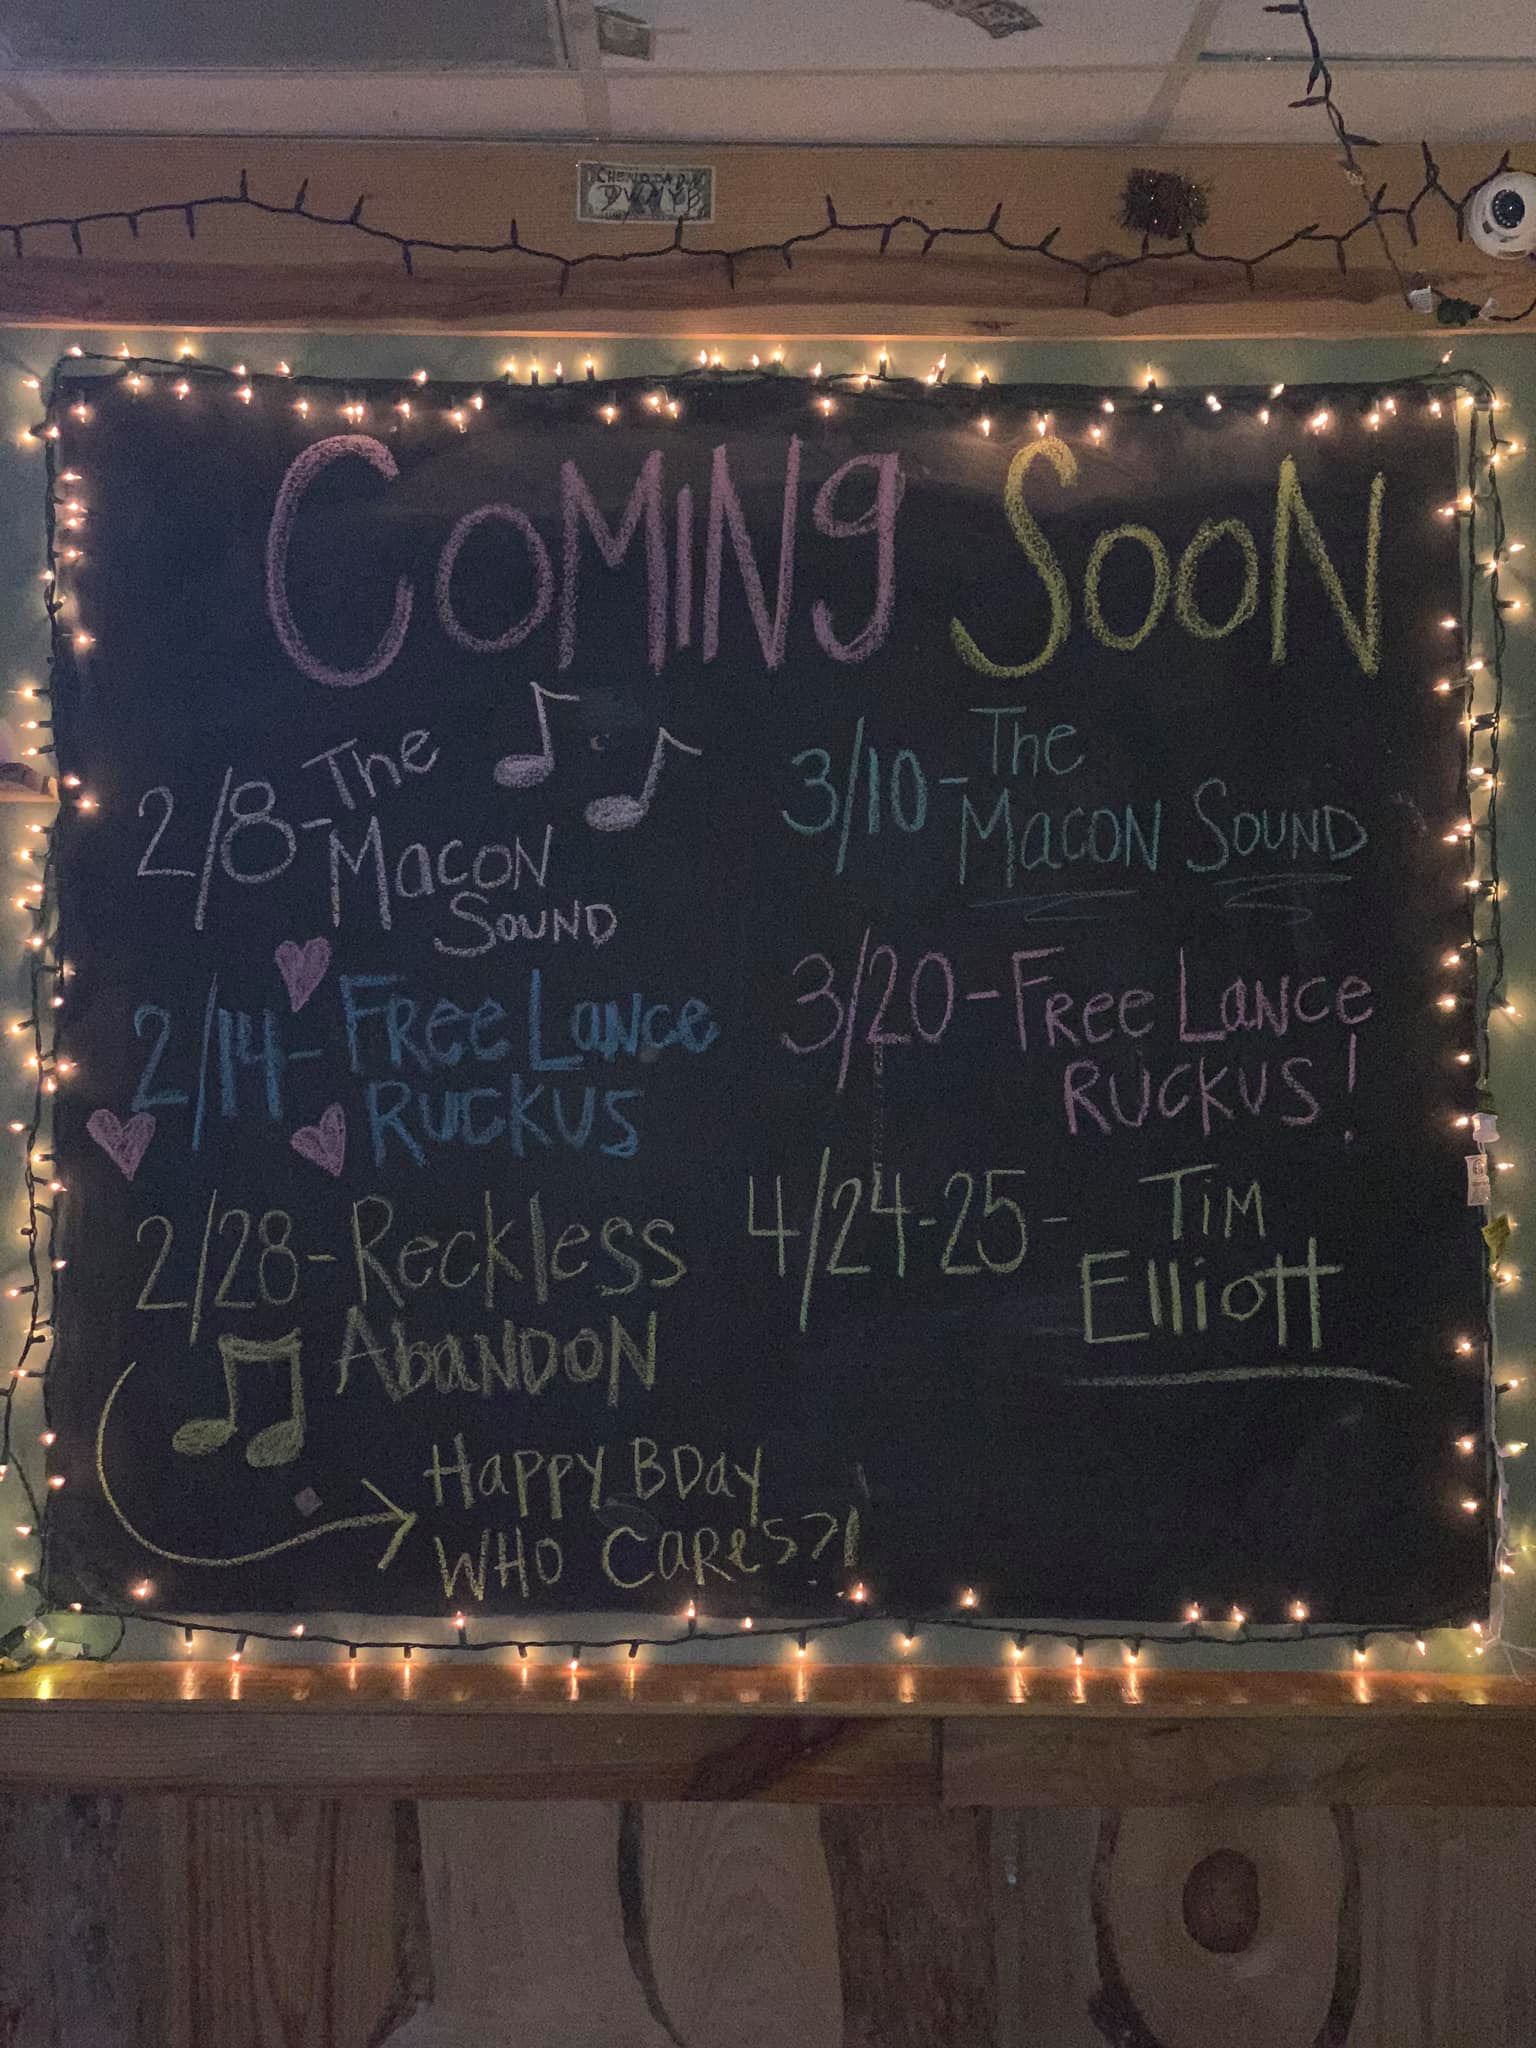 COMING SOON
2/8-The
MacoN
SOUND
2/14- FRee LaNce
RUCKUS
2/28-Reckless
AbaNDON
Happy BDay
WHO CaReS?!
3/10-The
MacoN SOUND
3/20-FRee LaNce
RUCKUS!
4/24-25- TiM
Elliott